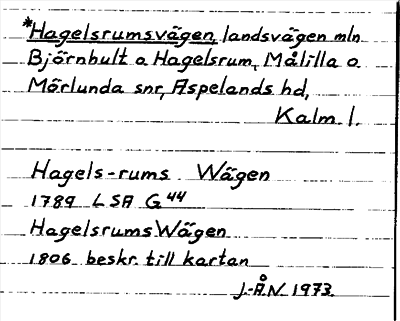 *Hagelsrumsvägen, landsvägen mln
Björnhult o Hagelsrum, Målilla o
Mörlunda snr, Aspelands hd,
Kalm l.
Hagels-rums Wägen
1789 LSA G 44
HagelsrumsWägen
1806 beskr. till kartan
J-Å.N. 1973.